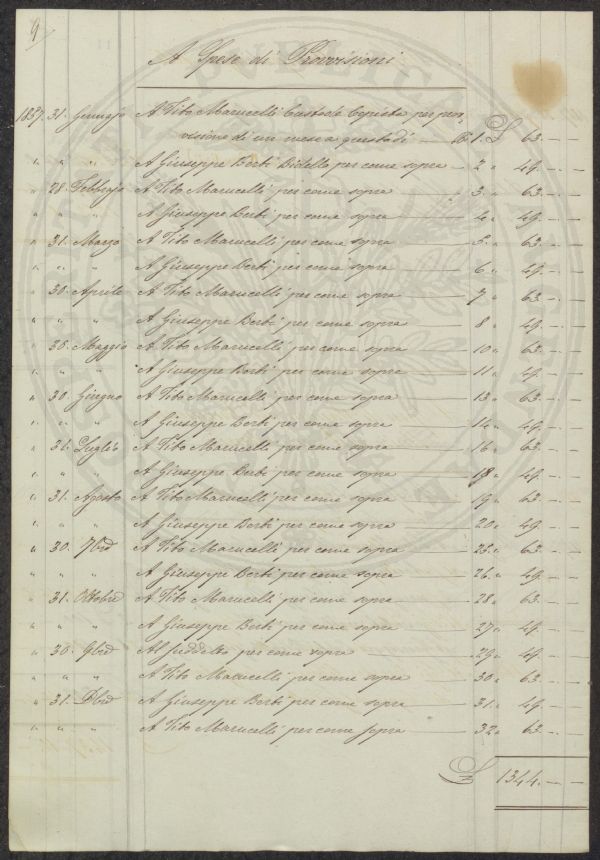 9
A Spese di Provvisioni
1837. 31. Gennajo A Tito Marucelli Custode Copista per prov
visione di un mese a questo dì — N 1. £ 63. — —
" " " A Giuseppe Berti Bidello per come sopra — 2 " 49. — —
" 28. Febbrajo A Tito Marucelli per come sopra — 3. " 63. — —
" " " A Giuseppe Berti per come sopra — 4. " 49. — —
" 31. Marzo A Tito Marucelli per come sopra — 5. " 63. — —
" " " A Giuseppe Berti per come sopra — 6 " 49. — —
" 30. Aprile A Tito Marucelli per come sopra — 7 " 63. — —
" " " A Giuseppe Berti per come sopra — 8 " 49. — —
" Maggio A Tito Marucelli per come sopra — 10 " 63. — —
" " " A Giuseppe Berti per come sopra — 11 " 49. — —
" 30. Giugno A Tito Marucelli per come sopra — 13 " 63. — —
" " " A Giuseppe Berti per come sopra — 14 " 49. — —
" 31. Luglio A Tito Marucelli per come sopra — 16 " 63. — —
" " " A Giuseppe Berti per come sopra — 18 " 49. — —
" 31. Agosto A Tito Marucelli per come sopra — 19 " 63. — —
" " " A Giuseppe Berti per come sopra — 20 " 49. — —
" 30. 7bre A Tito Marucelli per come sopra — 25 " 63. — —
" " " A Giuseppe Berti per come sopra — 26 " 49. — —
" 31. Ottobre A Tito Marucelli per come sopra — 28 " 63. — —
" " " A Giuseppe Berti per come sopra — 27 " 49. — —
" 30. 9bre Al suddetto per come sopra — 29 " 49. — —
" " " A Tito Marucelli per come sopra — 30 " 63. — —
" 31. Dbre A Giuseppe Berti per come sopra — 31. " 49. — —
" " " A Tito Marucelli per come sopra — 32 " 63. — —
£ 1344. — —